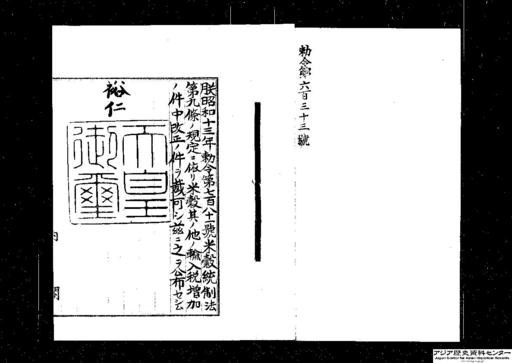 勅令第六百三十三號
朕昭和十三年勅令第七百八十號米穀統制法
第九條ノ規定ニ依リ米穀其ノ他ノ輸入税增加
ノ件中改正ノ件ヲ裁可シ茲ニ之ヲ公布セシム
裕仁
天皇
御璽
アジア歴史資料センター
Japan Center for Asian Historical Records